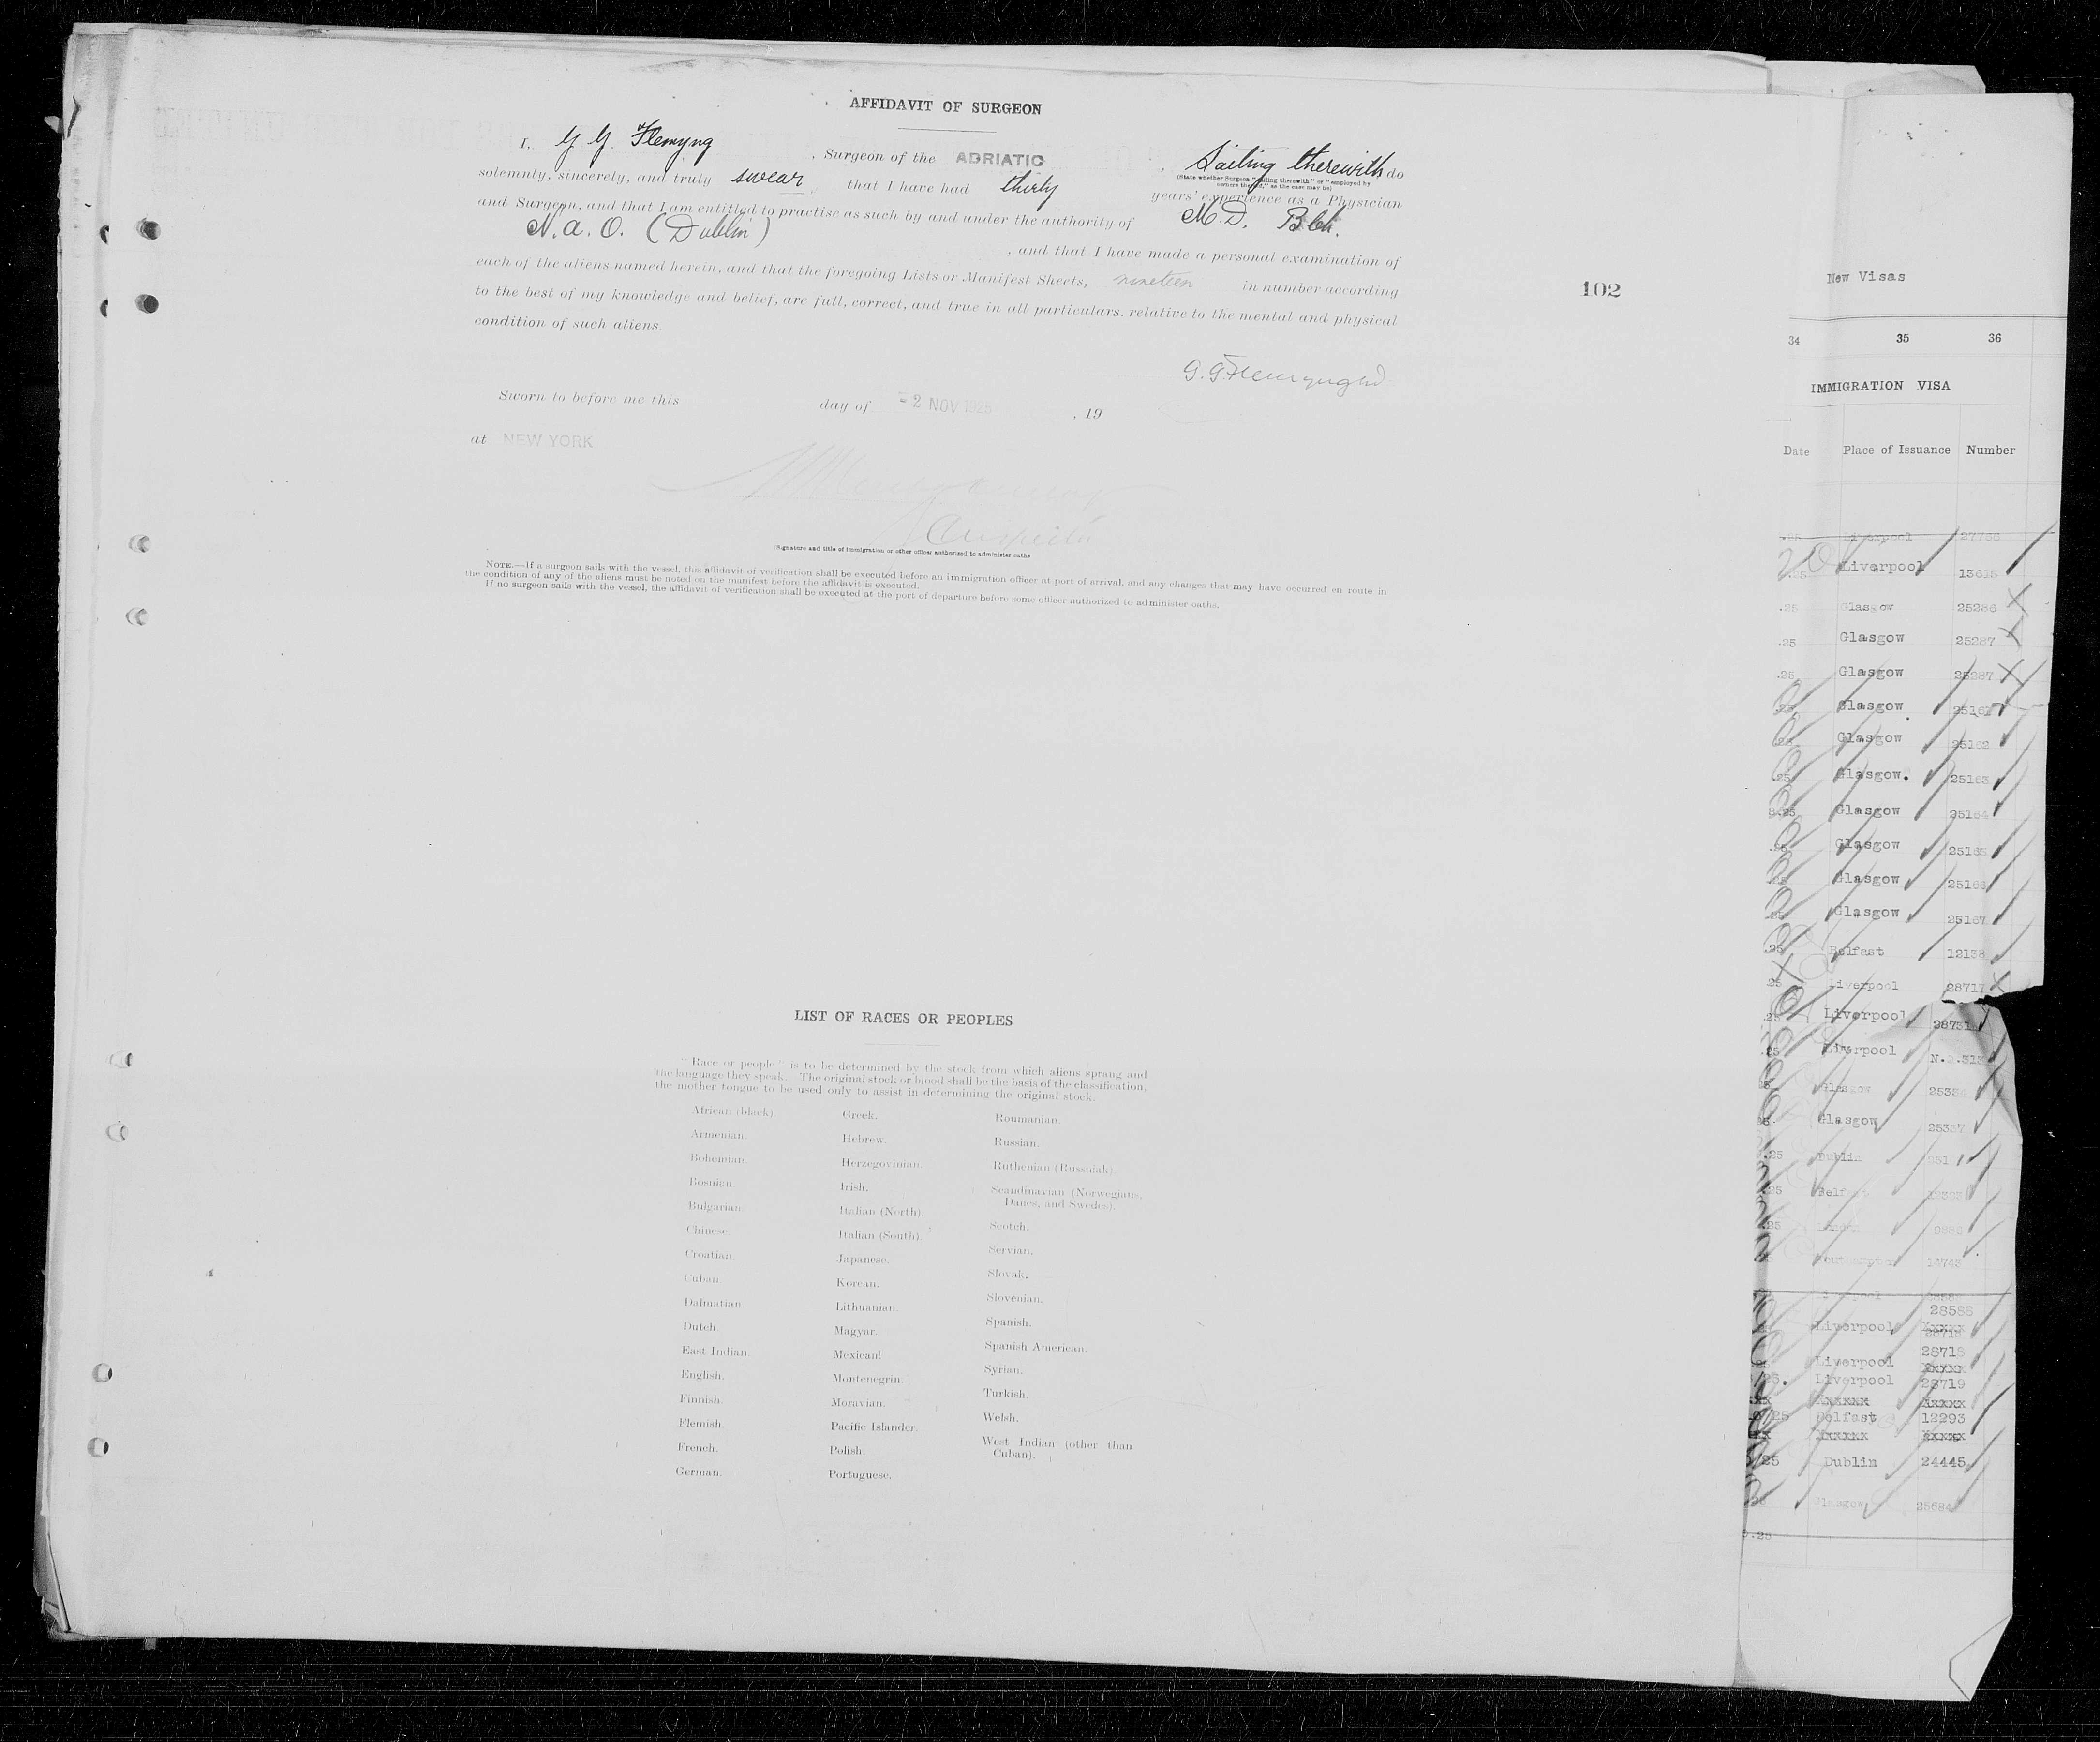 AFFIDAVIT OF SURGEON
I, G. G. Flemyng, Surgeon of the ADRIATIC, Sailing therewith do
(State whether Surgeon "sailing therewith" or "employed by
owners thereof," as the case may be)
solemnly, sincerely, and truly swear that I have had thirty years' experience as a Physician
and Surgeon, and that I am entitled to practise as such by and under the authority of M.D. B.Ch.
N.A.O. (Dublin), and that I have made a personal examination of
each of the aliens named herein, and that the foregoing Lists or Manifest Sheets, nineteen in number according
to the best of my knowledge and belief, are full, correct, and true in all particulars. relative to the mental and physical
condition of such aliens.
102
G. G. Flemyng MD
Sworn to before me this day of -2 NOV 1925, 19
at NEW YORK
(Signature and title of immigration or other officer authorized to administer oaths
NOTE.—If a surgeon sails with the vessel, this affidavit of verification shall be executed before an immigration officer at port of arrival, and any changes that may have occurred en route in
the condition of any of the aliens must be noted on the manifest before the affidavit is executed.
If no surgeon sails with the vessel, the affidavit of verification shall be executed at the port of departure before some officer authorized to administer oaths.
LIST OF RACES OR PEOPLES
"Race or people" is to be determined by the stock from which aliens sprang and
the language they speak. The original stock or blood shall be the basis of the classification,
the mother tongue to be used only to assist in determining the original stock.
African (black).
Armenian.
Bohemian.
Bosnian.
Bulgarian.
Chinese.
Croatian.
Cuban.
Dalmatian.
Dutch.
East Indian.
English.
Finnish.
Flemish.
French.
German.
Greek.
Hebrew.
Herzegovinian.
Irish.
Italian (North).
Italian (South).
Japanese.
Korean.
Lithuanian.
Magyar.
Mexican.
Montenegrin.
Moravian.
Pacific Islander.
Polish.
Portuguese.
Roumanian.
Russian.
Ruthenian (Russniak).
Scandinavian (Norwegians,
Danes, and Swedes).
Scotch.
Servian.
Slovak.
Slovenian.
Spanish.
Spanish American.
Syrian.
Turkish.
Welsh.
West Indian (other than
Cuban).
New Visas
34 35 36
IMMIGRATION VISA
Date Place of Issuance Number
.25 Liverpool 27736
.25 Liverpool 13615
.25 Glasgow 25286
.25 Glasgow 25287
.25 Glasgow 25287
.25 Glasgow 25161
.25 Glasgow 25162
.25 Glasgow. 25163
8.25 Glasgow 25164
.25 Glasgow 25165
.25 Glasgow 25166
.25 Glasgow 25167
.25 Belfast 12138
.25 Liverpool 28717
.25 Liverpool 28731
.25 Liverpool
Glasgow
Glasgow 25337
.25 Dublin
.25 Belfast
.25 London
Southampton 14743
Liverpool
28588
Liverpool xxxxx
28718
Liverpool xxxxx
25. Liverpool 28719
xx xxxxxx xxxxx
25 Belfast 12293
xxxxxx xxxxx
25 Dublin 24445
Glasgow 25684
.25